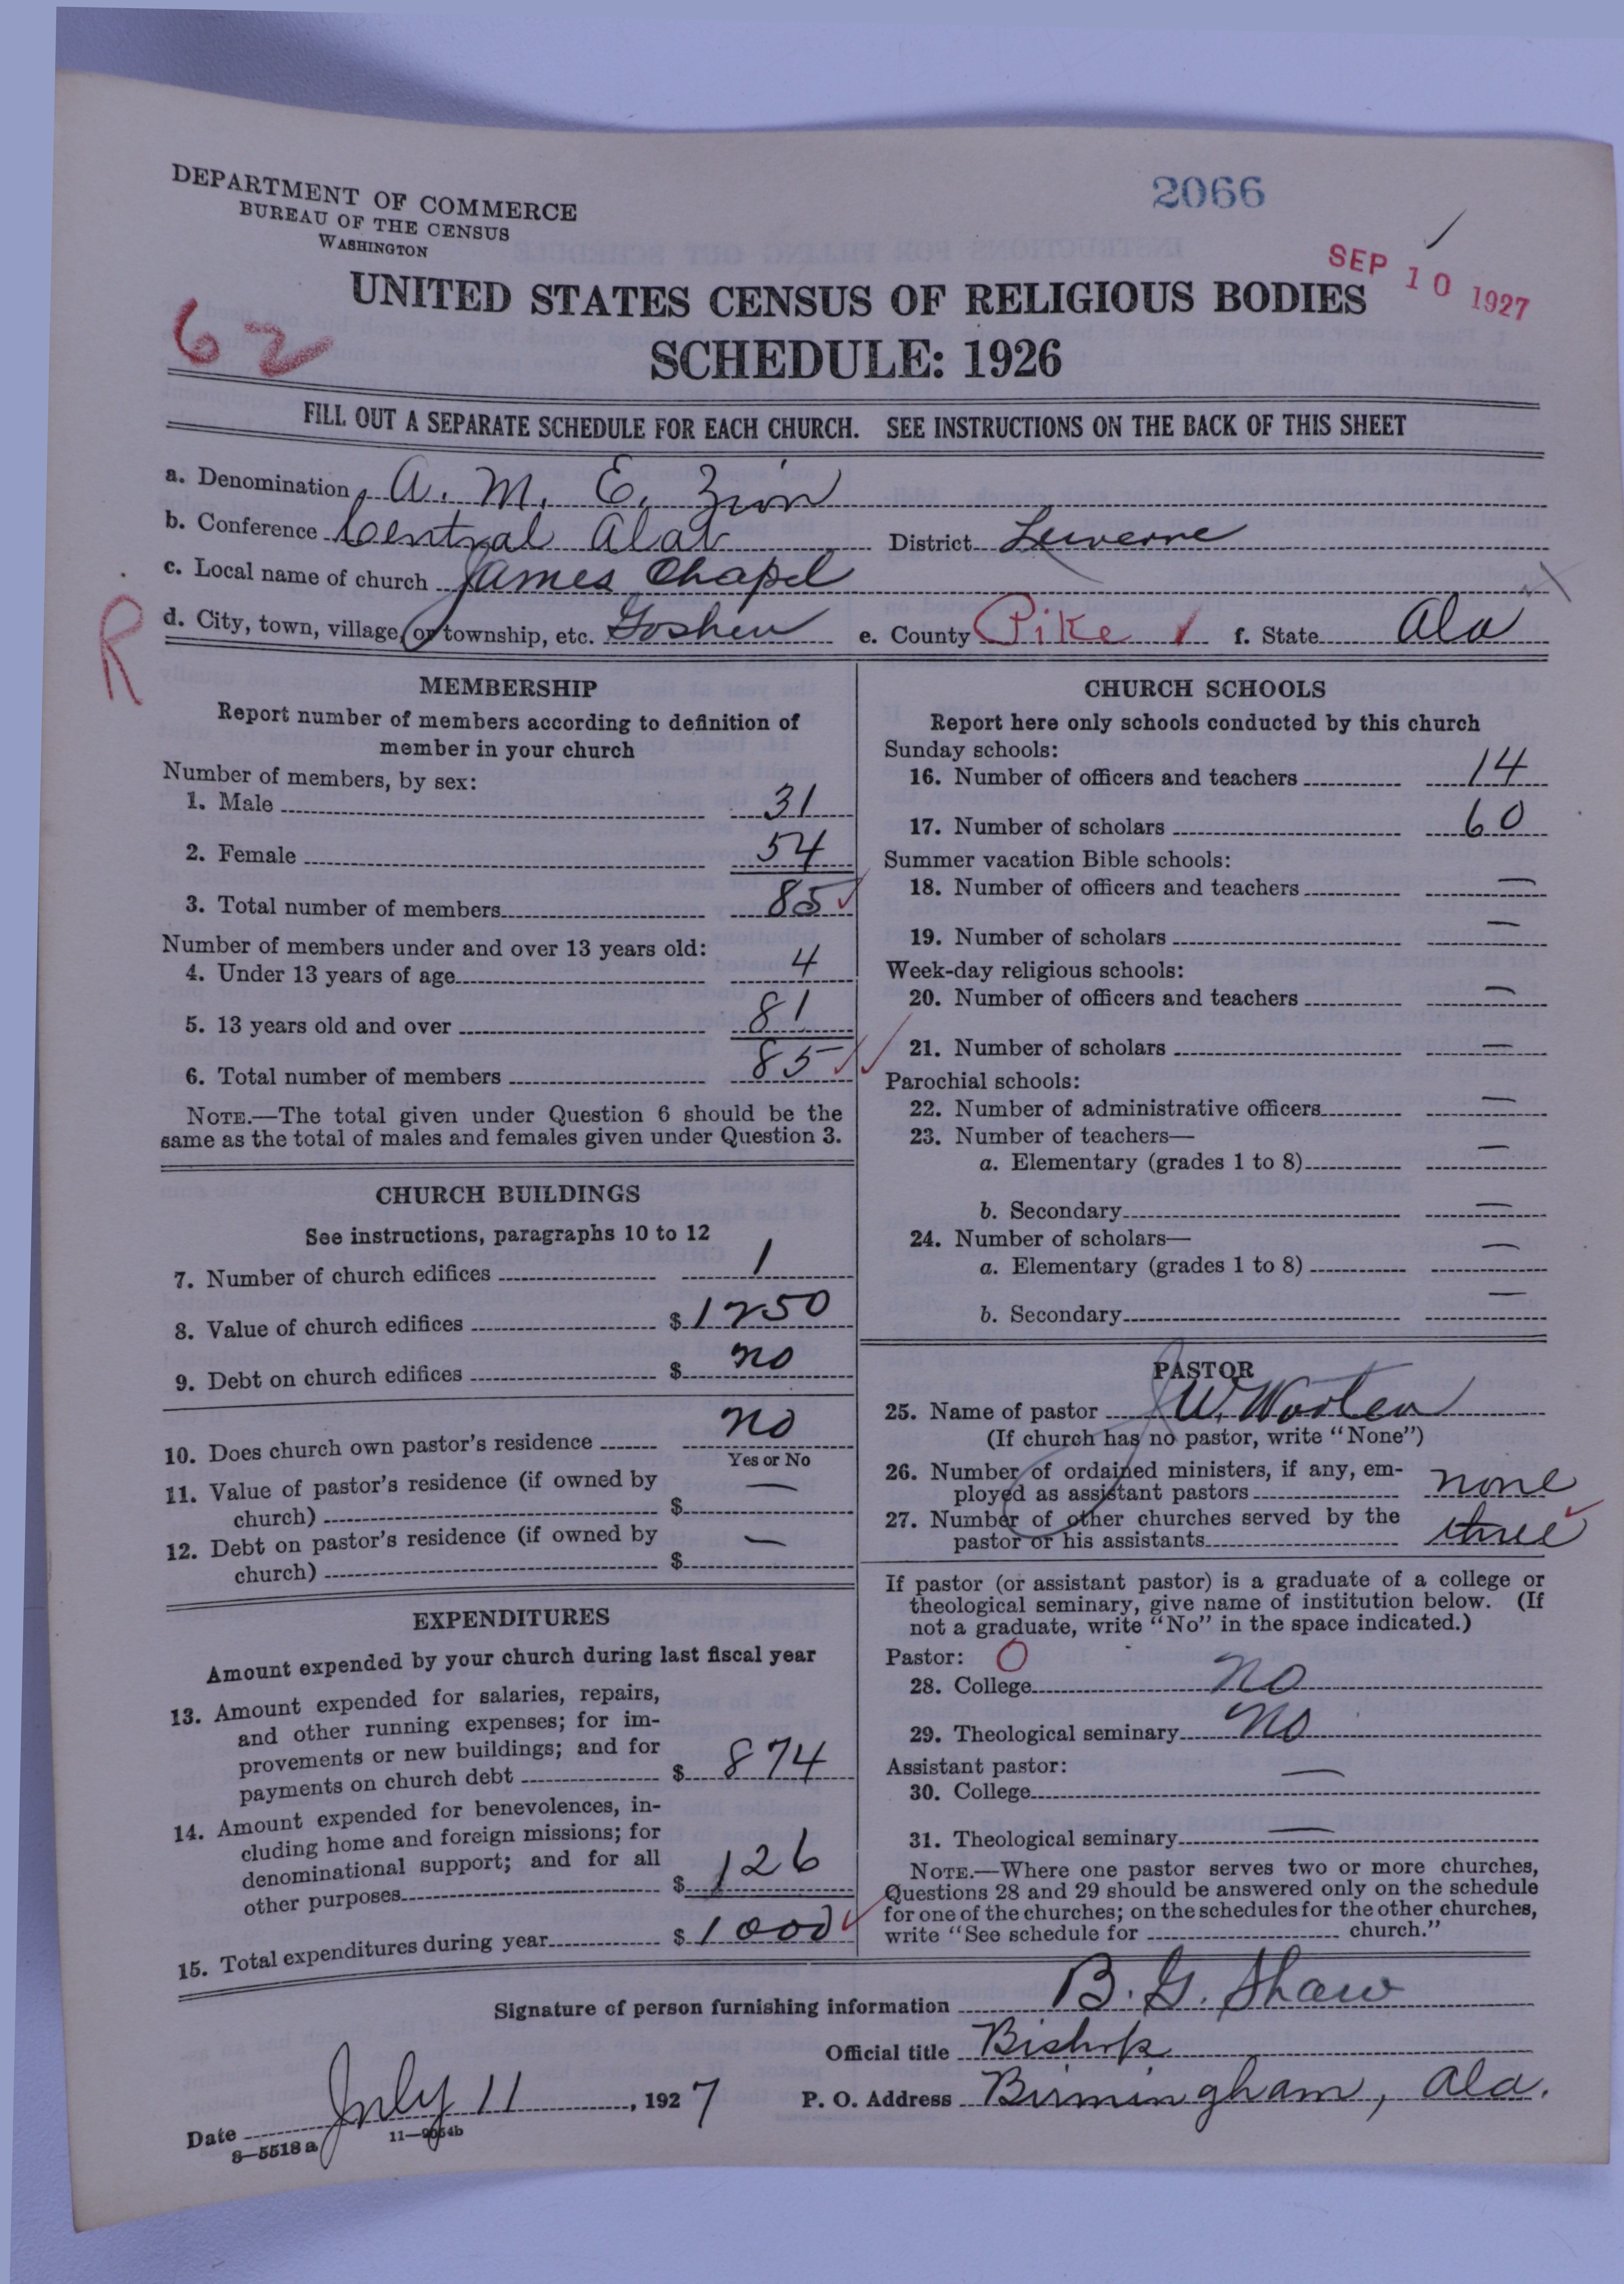 DEPARTMENT OF COMMERCE
BUREAU OF THE CENSUS
WASHINGTON
2066
SEP 10 1927
62
UNITED STATES CENSUS OF RELIGIOUS BODIES
SCHEDULE: 1926
FILL OUT A SEPARATE SCHEDULE FOR EACH CHURCH. SEE INSTRUCTIONS ON THE BACK OF THIS SHEET
a. Denomination A. M. E. Zion
b. Conference Central Ala District Luverne
c. Local name of church James Chapel
R
d. City, town, village, or township, etc. Goshen e. County Pike f. State Ala
MEMBERSHIP
Report number of members according to definition of
member in your church
Number of members, by sex:
1. Male 31
2. Female 54
3. Total number of members 85
Number of members under and over 13 years old:
4. Under 13 years of age 4
5. 13 years old and over 81
6. Total number of members 85
NOTE.—The total given under Question 6 should be the
same as the total of males and females given under Question 3.
CHURCH BUILDINGS
See instructions, paragraphs 10 to 12
7. Number of church edifices 1
8. Value of church edifices $ 1250
9. Debt on church edifices $ no
10. Does church own pastor's residence no
Yes or No
11. Value of pastor's residence (if owned by
church) $ —
12. Debt on pastor's residence (if owned by
church) $ —
EXPENDITURES
Amount expended by your church during last fiscal year
13. Amount expended for salaries, repairs,
and other running expenses; for im-
provements or new buildings; and for
payments on church debt $ 874
14. Amount expended for benevolences, in-
cluding home and foreign missions; for
denominational support; and for all
other purposes $ 126
15. Total expenditures during year $ 1000
CHURCH SCHOOLS
Report here only schools conducted by this church
Sunday schools:
16. Number of officers and teachers 14
17. Number of scholars 60
Summer vacation Bible schools:
18. Number of officers and teachers —
19. Number of scholars —
Week-day religious schools:
20. Number of officers and teachers —
21. Number of scholars —
Parochial schools:
22. Number of administrative officers —
23. Number of teachers—
a. Elementary (grades 1 to 8) —
b. Secondary —
24. Number of scholars—
a. Elementary (grades 1 to 8) —
b. Secondary —
PASTOR
25. Name of pastor J. W. Wooten
(If church has no pastor, write "None")
26. Number of ordained ministers, if any, em-
ployed as assistant pastors none
27. Number of other churches served by the
pastor or his assistants three
If pastor (or assistant pastor) is a graduate of a college or
theological seminary, give name of institution below. (If
not a graduate, write "No" in the space indicated.)
Pastor: O
28. College no
29. Theological seminary no
Assistant pastor:
30. College —
31. Theological seminary —
NOTE.—Where one pastor serves two or more churches,
Questions 28 and 29 should be answered only on the schedule
for one of the churches; on the schedules for the other churches,
write "See schedule for church."
Signature of person furnishing information B. G. Shaw
Official title Bishop
Date July 11, 1927 P. O. Address Birmingham, Ala.
8—5518a 11—9054b